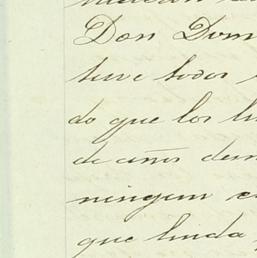 Don Dom
tuve todos
do que los li
de años den
ningun c
que linda